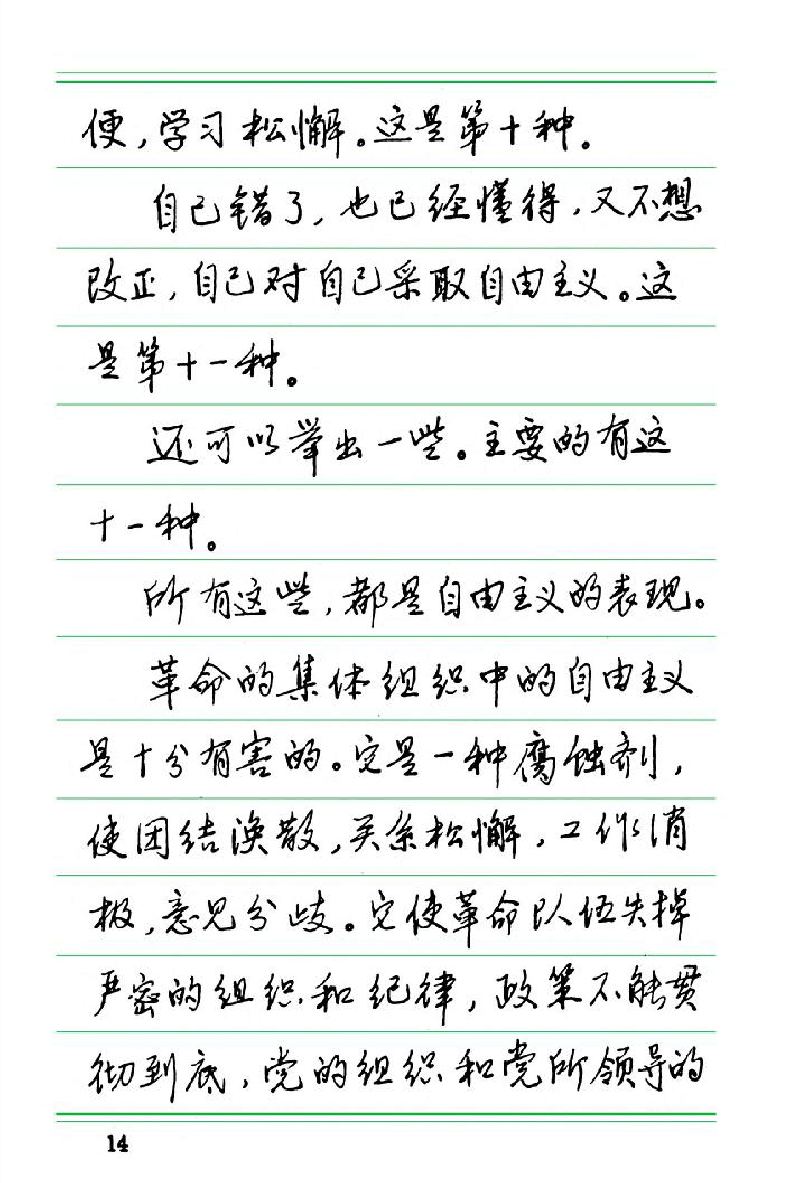 便,学习松懈。这是第十种。
自己错了,也已经懂得,又不想
改正,自己对自己采取自由主义。这
是第十一种。
还可以举出一些。主要的有这
十一种。
所有这些,都是自由主义的表现。
革命的集体组织中的自由主义
是十分有害的。它是一种腐蚀剂,
使团结涣散,关系松懈,工作消
极,意见分歧。它使革命队伍失掉
严密的组织和纪律,政策不能贯
彻到底,党的组织和党所领导的
14